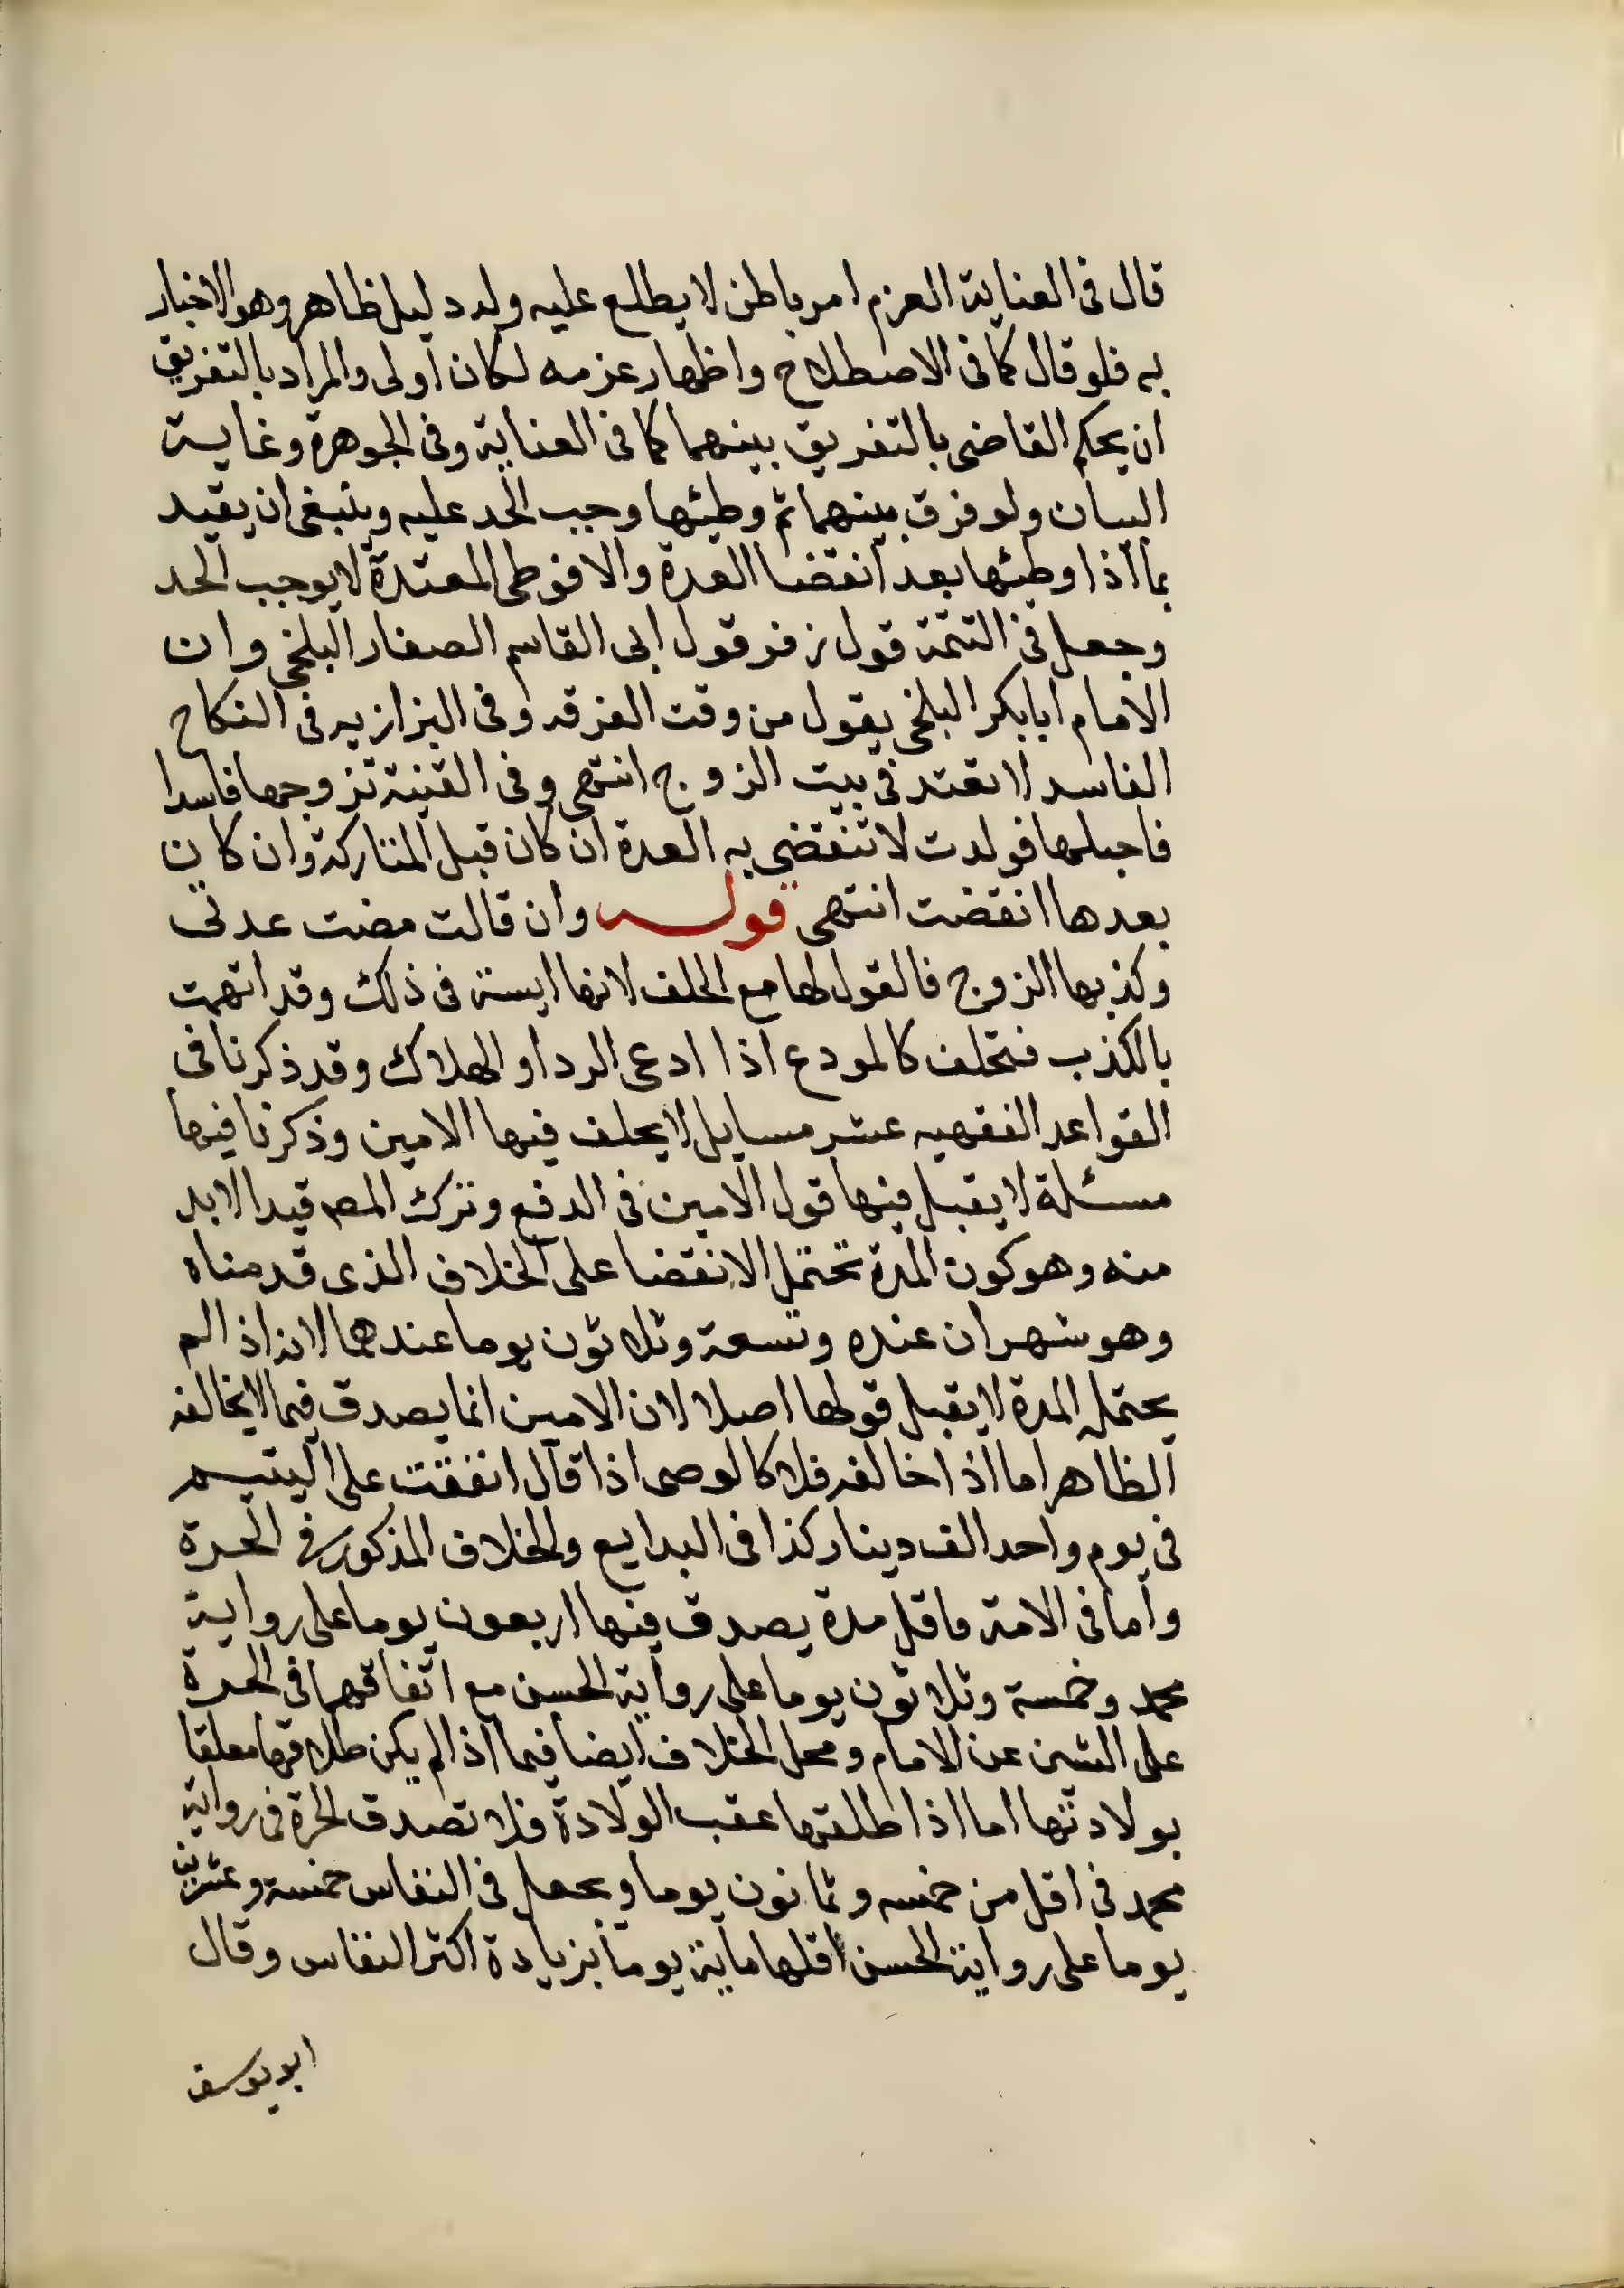 قال فى العناية العزم امر باطن لا يطلع عليه وله دليل ظاهر وهو الاخبار
به فلو قال كما فى الاصطلاح واظهار عزمه لكان اولى والمراد بالتفريق
ان يحكم القاضى بالتفريق بينهما كما فى العناية وفى الجوهرة وغاية
البيان ولو فرق بينهما ثم وطئها وجب الحد عليه وينبغى ان يقيد
بما اذا وطئها بعد انقضا العدة والا فوطى المعتدة لا يوجب الحد
وجعل فى التتمة قول زفر قول ابى القاسم الصفار البلخى وان
الامام ابا بكر البلخى يقول من وقت الفرقه وفى البزازيه فى النكاح
الفاسد لا تعتد فى بيت الزوج انتهى وفى القنية تزوجها فاسدا
فاحبلها فولدت لا تنقضى به العدة ان كان قبل المتاركة وان كان
بعدها انقضت انتهى قوله وان قالت مضت عدتى
وكذبها الزوج فالقول لها مع الحلف لانها اينسة فى ذلك وقد اتهمت
بالكذب فتحلف كالمودع اذا ادعى الرد او الهلاك وقد ذكرنا فى
القواعد الفقهيه عشر مسايل لا يحلف فيها الامين وذكرنا فيها
مسئلة لا يقبل فيها قول الامين فى الدفع وترك المص قيدا لابد
منه وهو كون المدة تحتمل الانقضا على الخلاف الذى قدمناه
وهو شهران عنده وتسعة وثلاثون يوما عندهما لانه اذ الم
يحتمله المدة لا يقبل قولها اصلا لان الامين انما يصدق فيما لا يخالفه
الظاهر اما اذا خالفه فلا كالوصى اذا قال انفقت على اليتيم
فى يوم واحد الف دينار كذا فى البدايع والخلاف المذكور فى الحرة
واما فى الامة فاقل مدة يصدق فيها اربعون يوما على رواية
محمد وخمسة وثلاثون يوما على رواية الحسن مع اتفاقهما فى الحرة
على الستين عن الامام ومحل الخلاف ايضا فيما اذا لم يكن طلاقها معلقا
بولادتها اما اذا طلقها عقب الولادة فلا تصدق الحرة فى رواية
محمد فى اقل من خمسه وثمانون يوما ويجعل فى النفاس خمسة وعشرين
يوما على رواية الحسن اقلها ماية يوما بزيادة اكثر النفاس وقال
ابو يوسف